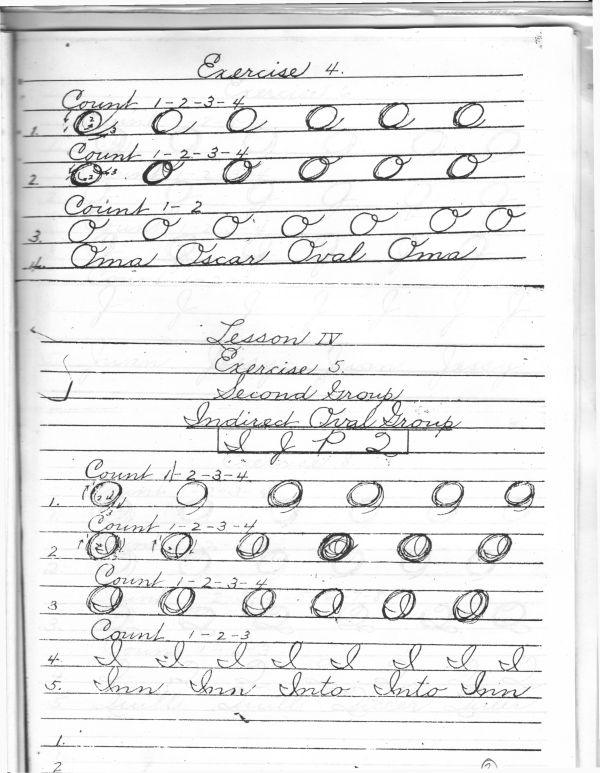 Exercise 4.
Count 1-2-3-4
1. O O O O O O
Count 1-2-3-4
2 O O O O O O
Count 1-2
3. O O O O O O O
4. Oma Oscar Oval Oma
Lesson IV
Exercise 5.
Second Group
Indirect Oval Group
I J P Q
Count 1-2-3-4
1.
Count 1-2-3-4
2
Count 1-2-3-4
3
Count 1-2-3
4. I I I I I I I I
5. Inn Inn Into Into Inn
1.
2
2